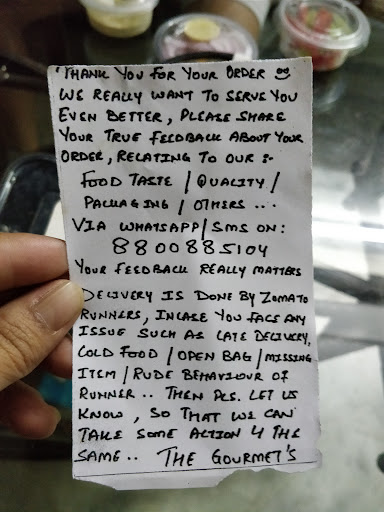 THANK YOU FOR YOUR ORDER
WE REALLY WANT TO SERVE YOU
EVEN BETTER, PLEASE SHARE
YOUR TRUE FEEDBACK ABOUT YOUR
ORDER, RELATING TO OUR :-
FOOD TASTE / QUALITY /
PACKAGING / OTHERS ....
VIA WHATSAPP/SMS ON:
8800885104
YOUR FEEDBACK REALLY MATTERS
DELIVERY IS DONE BY ZOMATO
RUNNERS, INCASE YOU FACE ANY
ISSUE SUCH AS LATE DELIVERY,
COLD FOOD / OPEN BAG / MISSING
ITEM / RUDE BEHAVIOUR OF
RUNNER .. THEN PLS. LET US
KNOW, SO THAT WE CAN
TAKE SOME ACTION 4 THE
SAME .. THE GOURMET'S